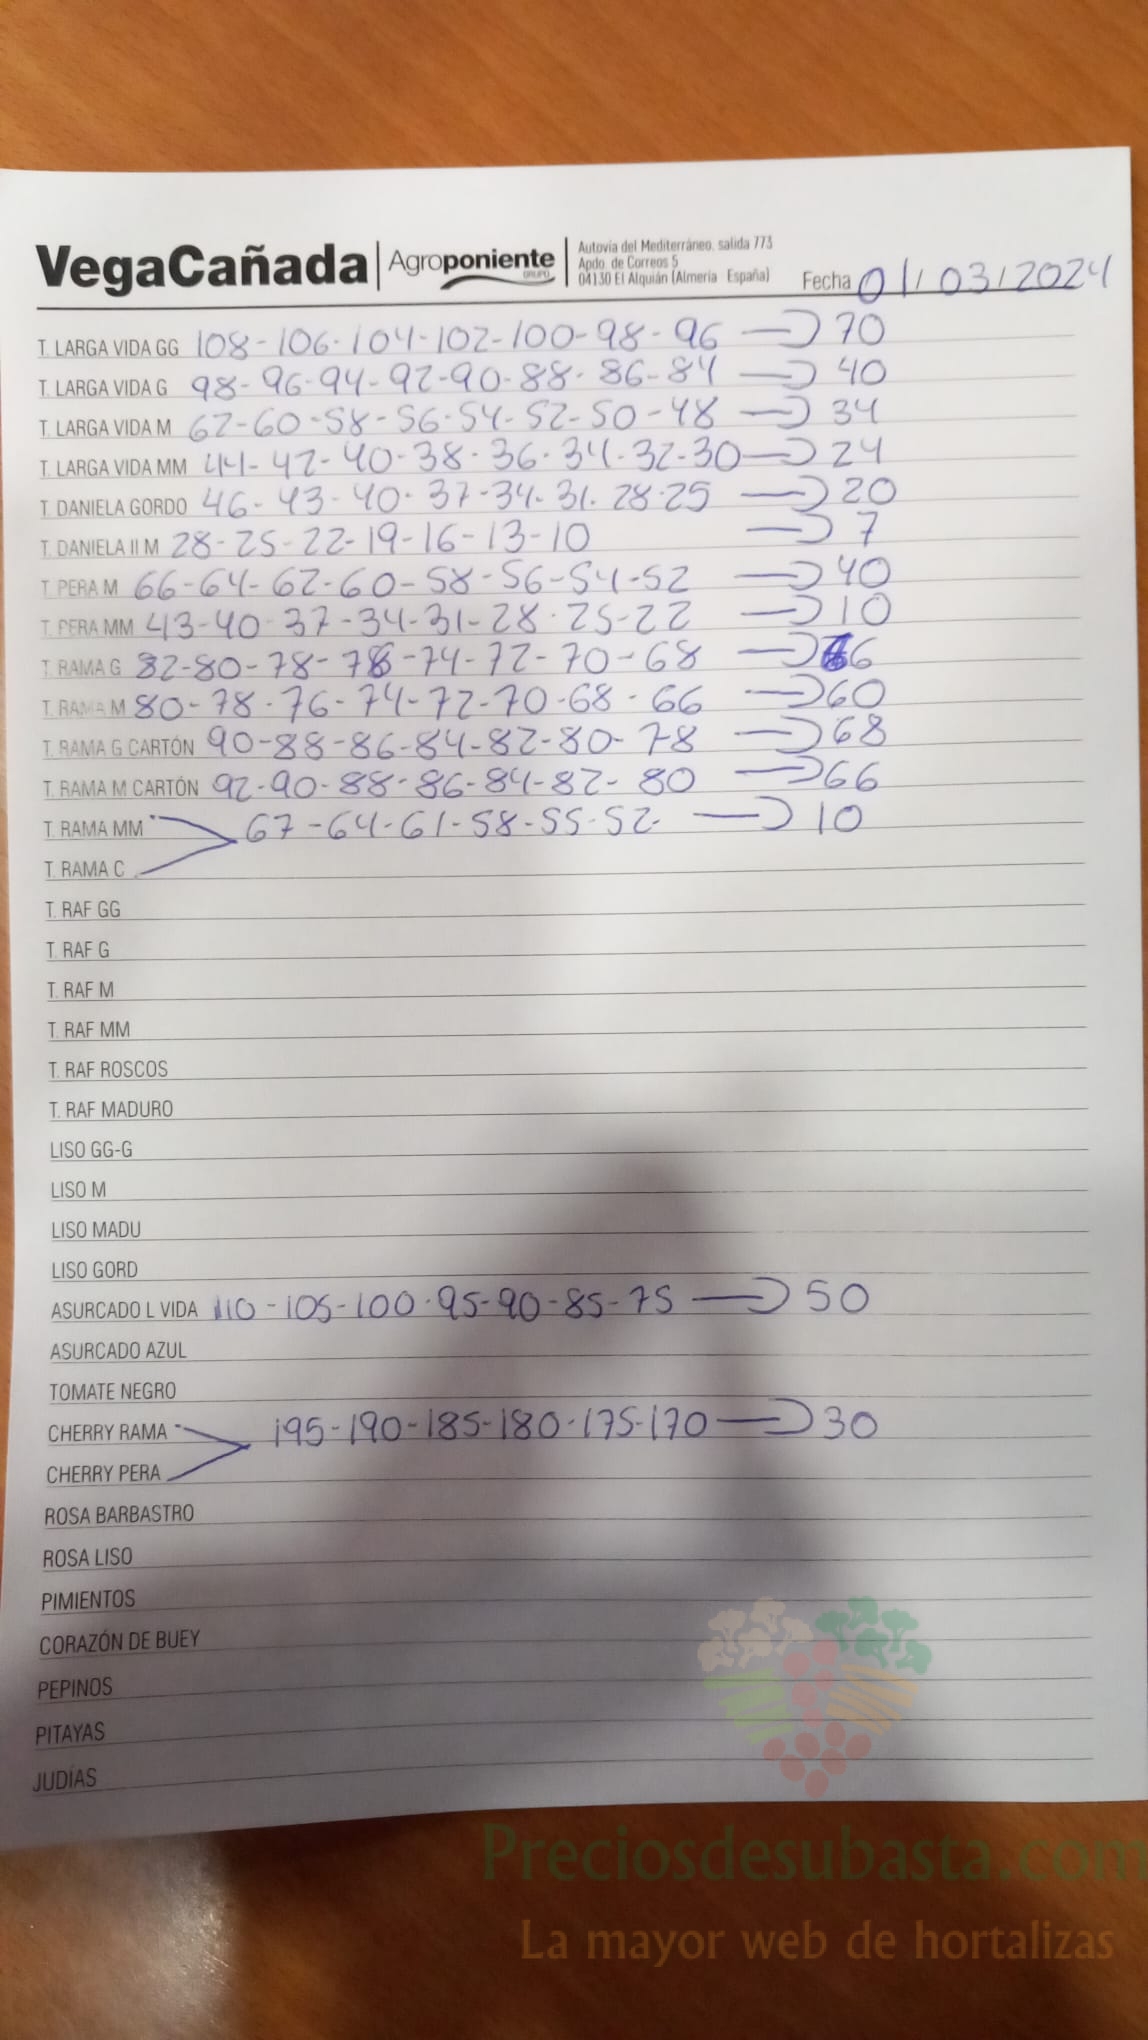 VegaCañada | Agroponiente GRUPO
Autovía del Mediterráneo, salida 773
Apdo. de Correos 5
04130 El Alquián (Almería España)
Fecha 01/03/2024
T. LARGA VIDA GG 108-106-104-102-100-98-96 → 70
T. LARGA VIDA G 98-96-94-92-90-88-86-84 → 40
T. LARGA VIDA M 62-60-58-56-54-52-50-48 → 34
T. LARGA VIDA MM 44-42-40-38-36-34-32-30 → 24
T. DANIELA GORDO 46-43-40-37-34-31-28-25 → 20
T. DANIELA II M 28-25-22-19-16-13-10 → 7
T. PERA M 66-64-62-60-58-56-54-52 → 40
T. PERA MM 43-40-37-34-31-28-25-22 → 10
T. RAMA G 82-80-78-76-74-72-70-68 → 66
T. RAMA M 80-78-76-74-72-70-68-66 → 60
T. RAMA G CARTÓN 90-88-86-84-82-80-78 → 68
T. RAMA M CARTÓN 92-90-88-86-84-82-80 → 66
T. RAMA MM 67-64-61-58-55-52- → 10
T. RAMA C
T. RAF GG
T. RAF G
T. RAF M
T. RAF MM
T. RAF ROSCOS
T. RAF MADURO
LISO GG-G
LISO M
LISO MADU
LISO GORD
ASURCADO L VIDA 110-105-100-95-90-85-75 → 50
ASURCADO AZUL
TOMATE NEGRO
CHERRY RAMA 195-190-185-180-175-170 → 30
CHERRY PERA
ROSA BARBASTRO
ROSA LISO
PIMIENTOS
CORAZÓN DE BUEY
PEPINOS
PITAYAS
JUDÍAS
Preciosdesubasta.com
La mayor web de hortalizas